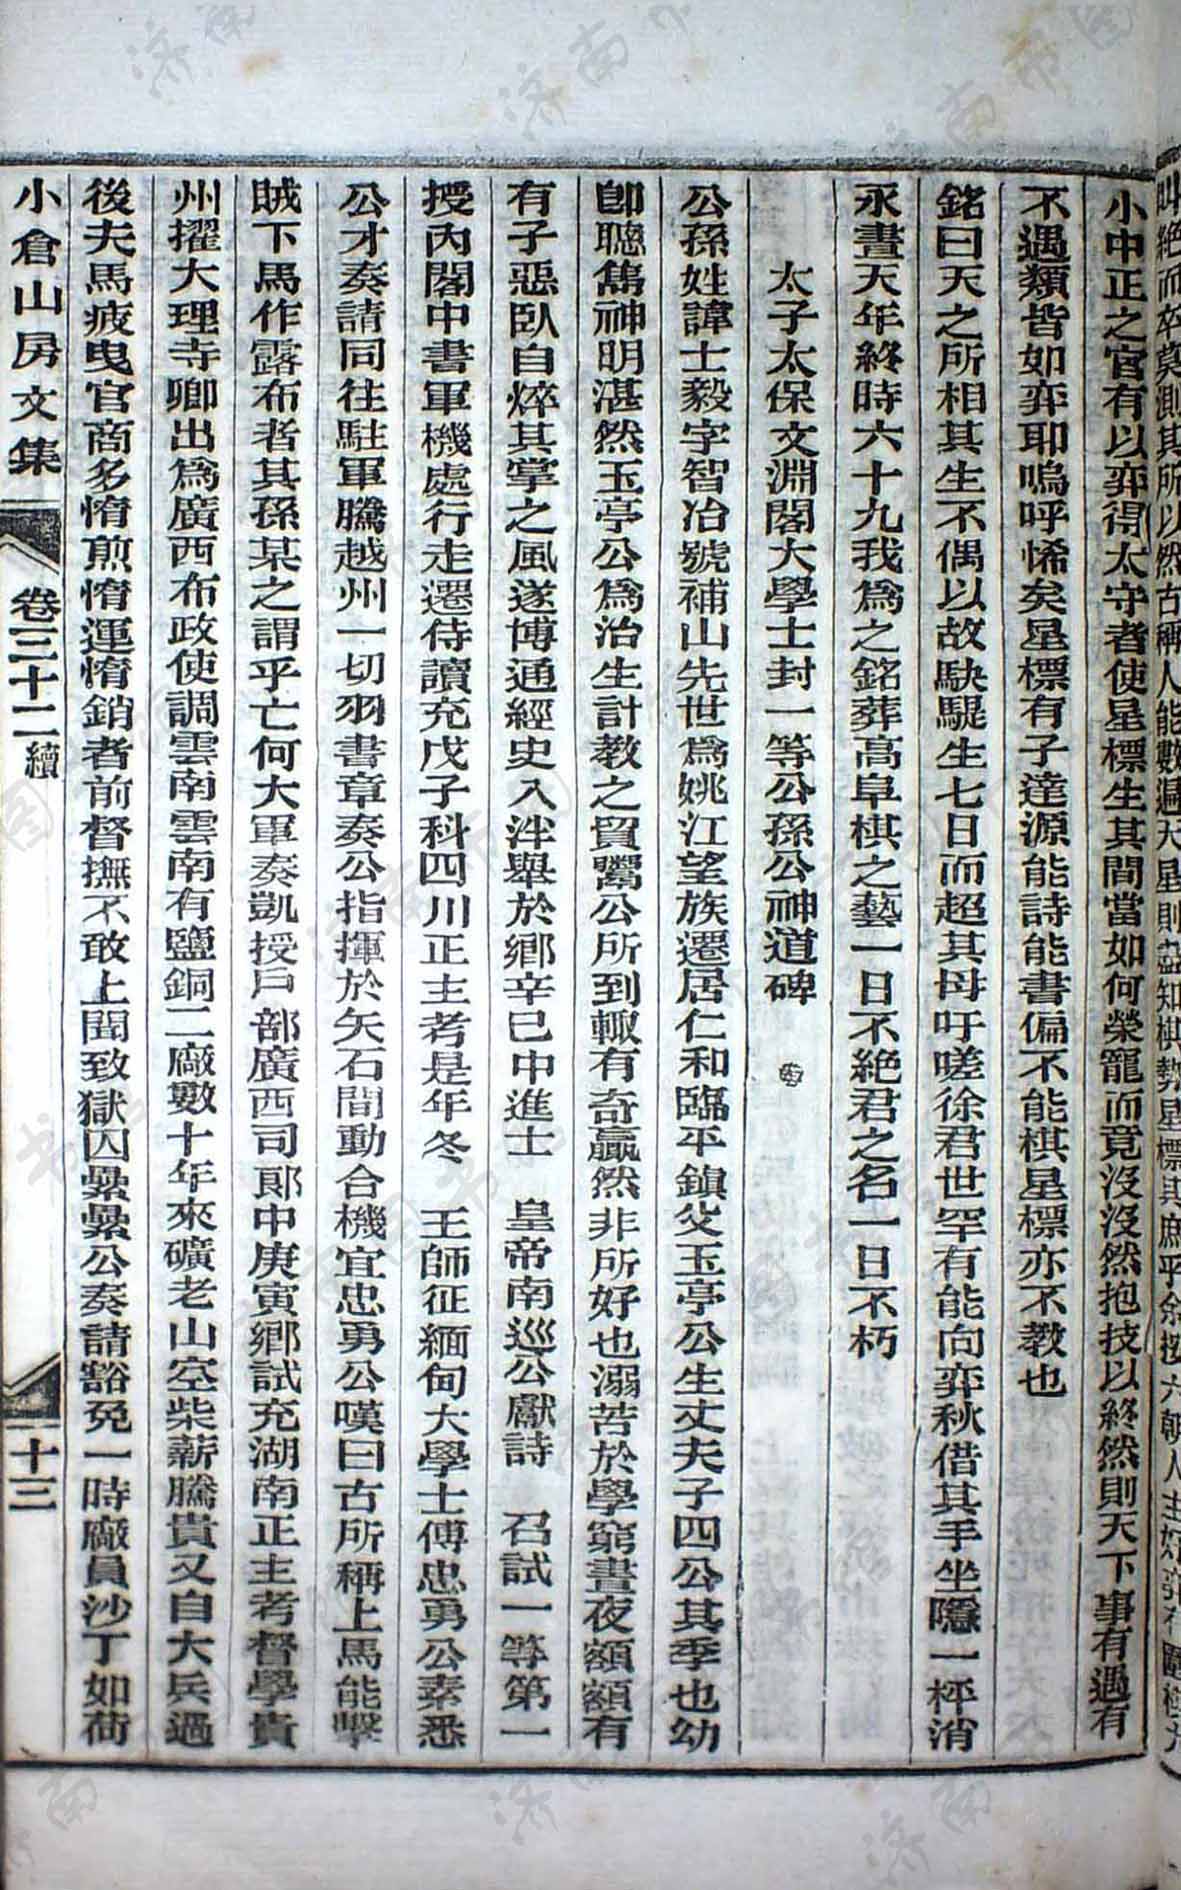 叫絶而卒莫測其所以然古稱人能數遍天星則知棋勢星標其庶乎余按六朝人主好弈
小中正之官有以弈得太守者使星標生其間當如何榮寵而竟沒沒然抱技以終然則天下事有遇有
不遇類皆如弈耶嗚呼悕矣星標有子達源能詩能書偏不能棋星標亦不教也
銘曰天之所相其生不偶以故駃騠生七日而超其母吁嗟徐君世罕有能向弈秋借其手坐隱一枰消
永晝天年終時六十九我爲之銘葬高阜棋之藝一日不絕君之名一日不朽
太子太保文淵閣大學士封一等公孫公神道碑
公孫姓諱士毅字智冶號補山先世爲姚江望族遷居仁和臨平鎮父玉亭公生丈夫子四公其季也幼
卽聰雋神明湛然玉亭公爲治生計教之貿鬻公所到輙有奇贏然非所好也溺苦於學窮晝夜額額有
有子惡臥自焠其掌之風遂博通經史入泮舉於鄉辛巳中進士　皇帝南巡公獻詩　召試一等第一
授內閣中書軍機處行走遷侍讀充戊子科四川正主考是年冬　王師征緬甸大學士傅忠勇公素悉
公才奏請同往駐軍騰越州一切羽書章奏公指揮於矢石間動合機宜忠勇公嘆曰古所稱上馬能擊
賊下馬作露布者其孫某之謂乎亡何大軍奏凱授戶部廣西司郞中庚寅鄉試充湖南正主考督學貴
州擢大理寺卿出爲廣西布政使調雲南雲南有鹽銅二廠數十年來礦老山空柴薪騰貴又自大兵過
後夫馬疲曳官商多惰煎惰運惰銷者前督撫不敢上聞致獄囚纍纍公奏請豁免一時廠員沙丁如荷
小倉山房文集　卷三十二續　十三